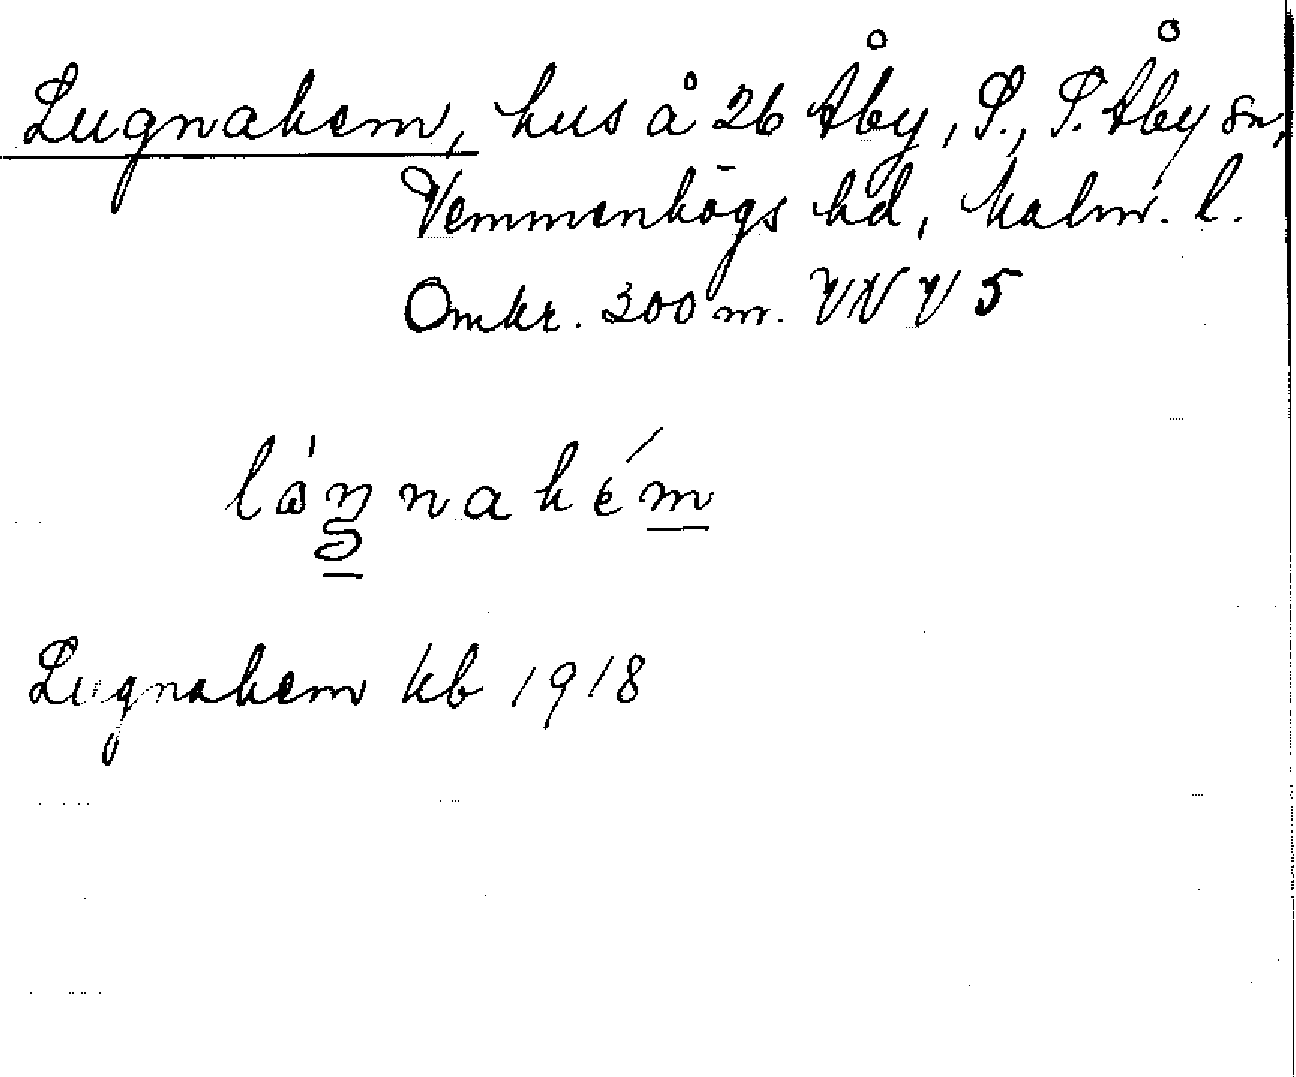 Lugnahem, hus å 26 Åby, S., S. Åby sn,
Vemmenhögs hd, Malm. l.
Omkr. 300 m. VNV 5
Lugnahem kb 1918